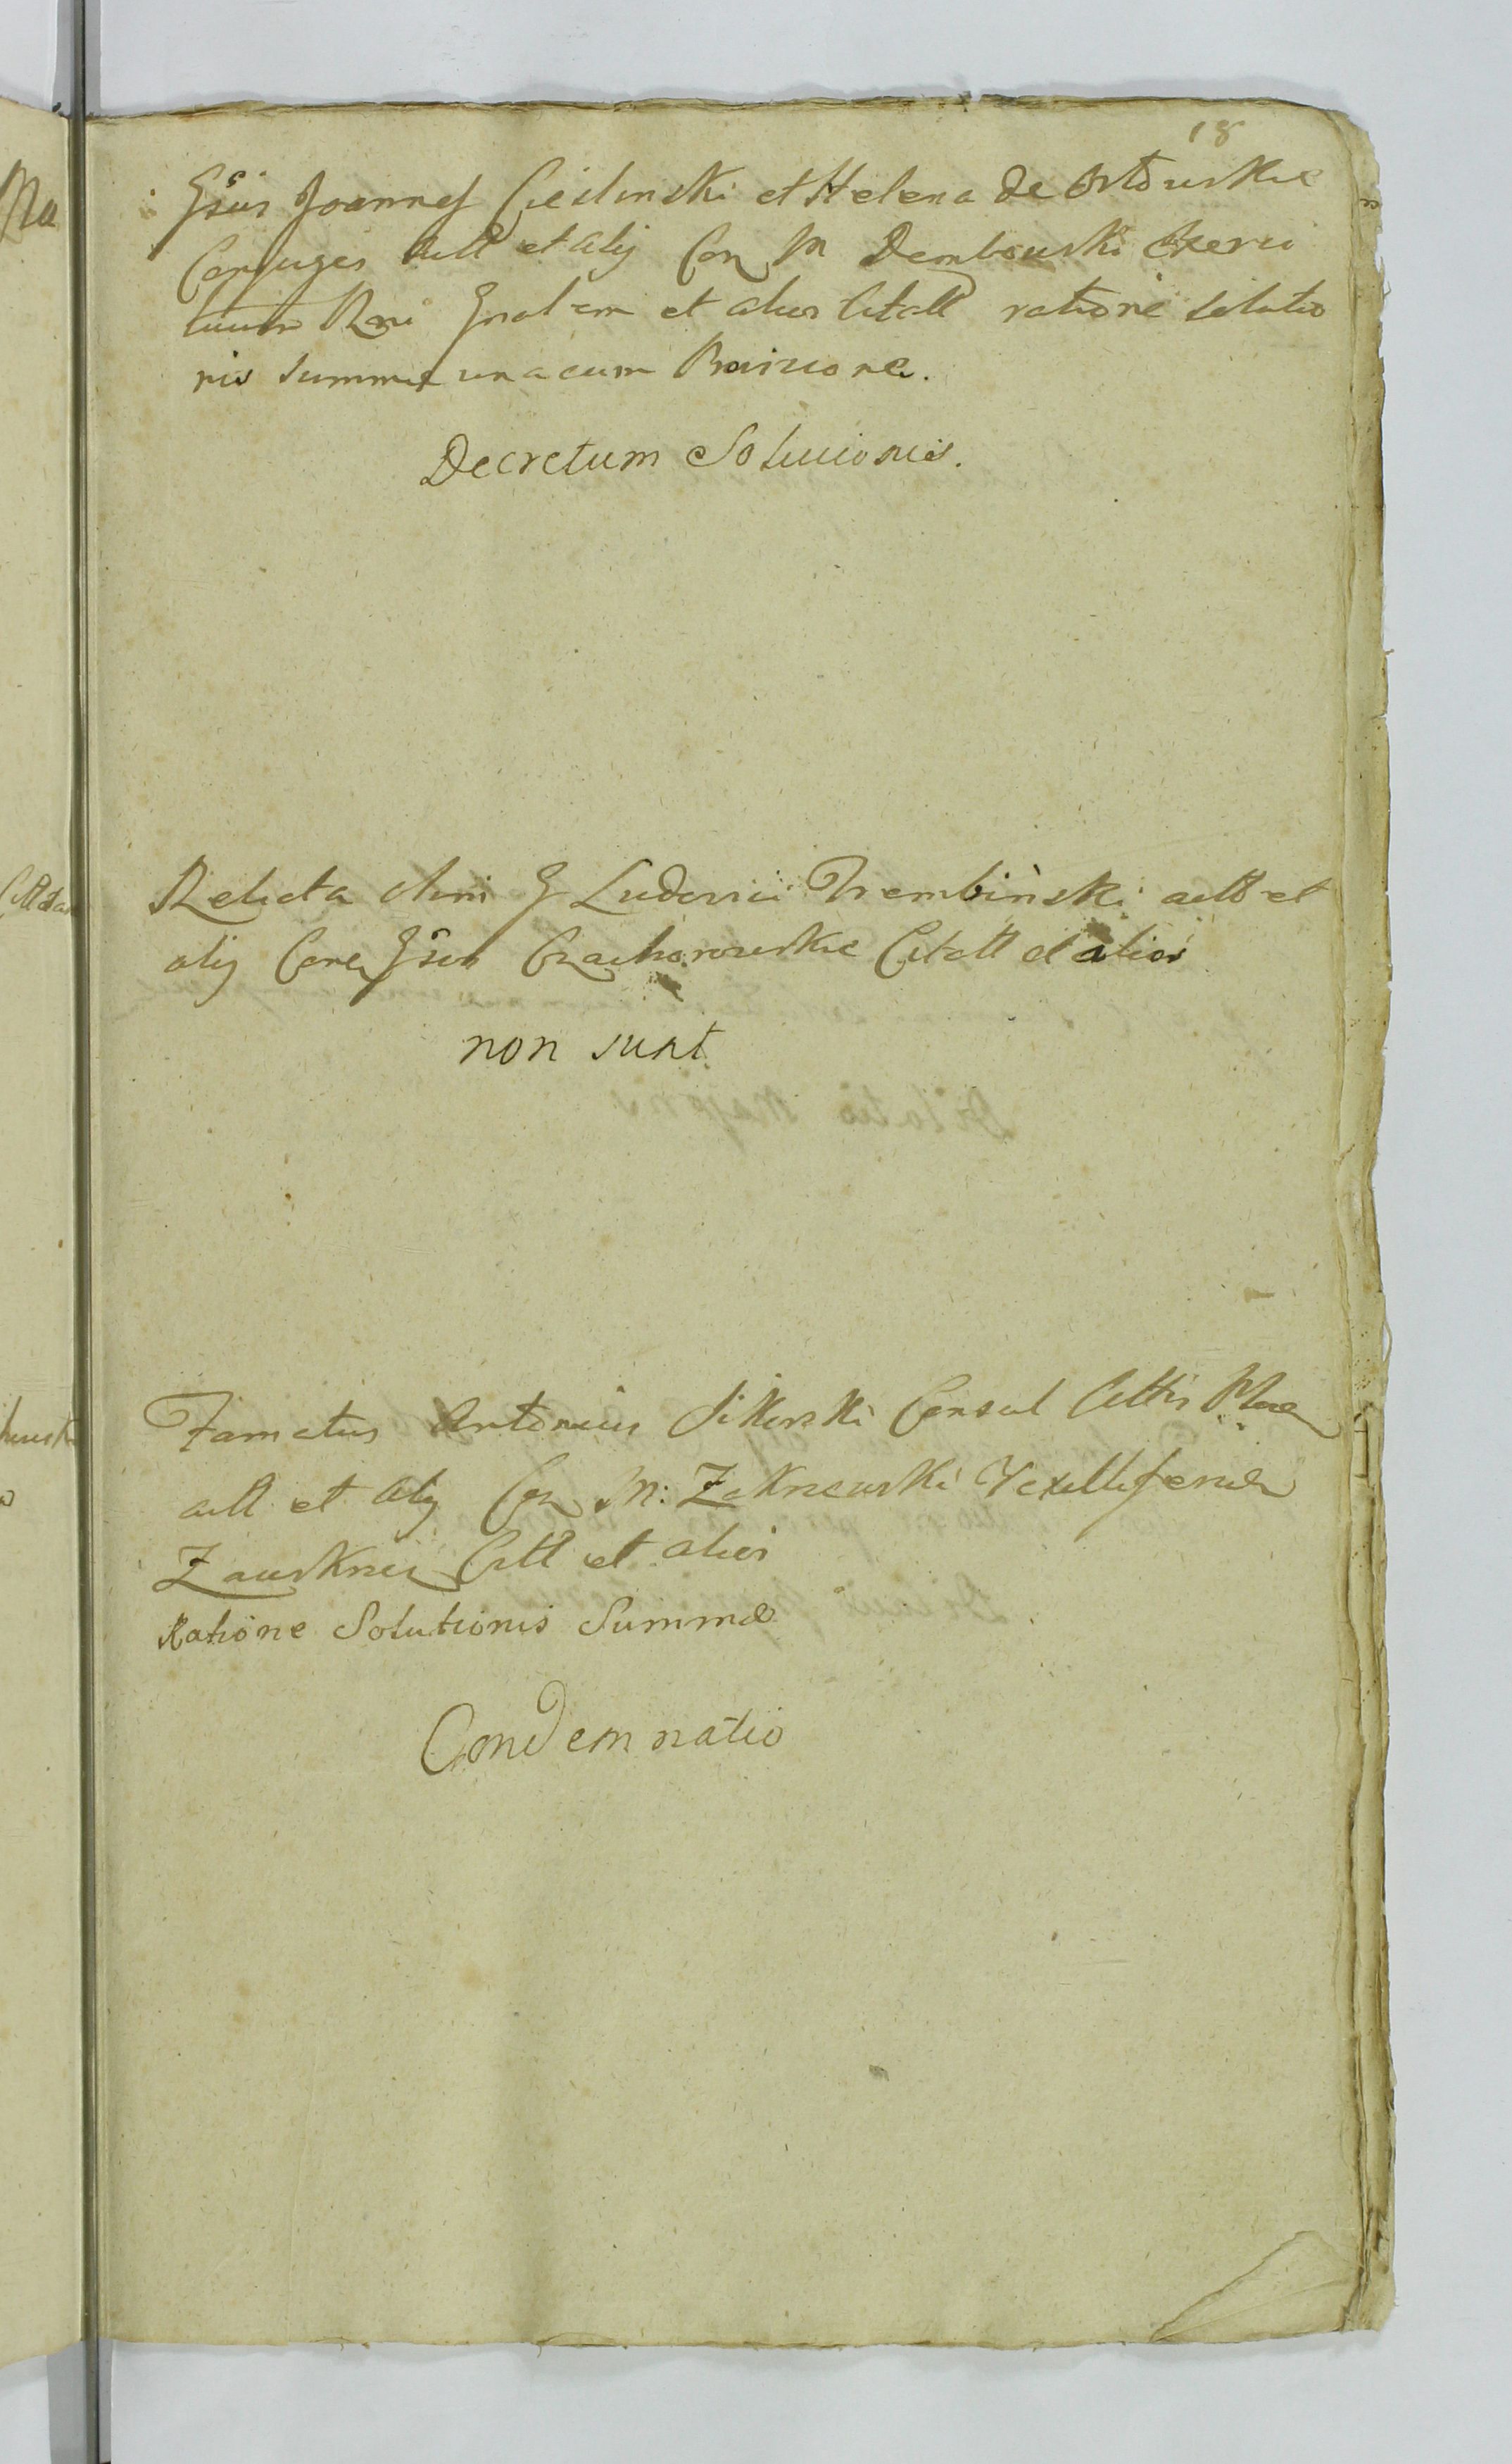 18
Gsus Joannes Cieslinski et Helena de Ostowskie
Conjuges Act et alij Con M Dembowski Exerci
tuum Rni Gnalem et alios Citatt ratione solutio
nis summæ una cum Provisione.
Decretum Solucionis.
Relicta olim G Ludovici Trembinski actt et
alij Con Gsos Czachorowskie Citatt et alios
non sunt
Famatus Antonius Sikorski Consul Cittis
actt et alij Con M: Zakrzewski Vexilliferum
Zawskrnen Citt et alios
Ratione Solutionis Summæ
Condemnatio